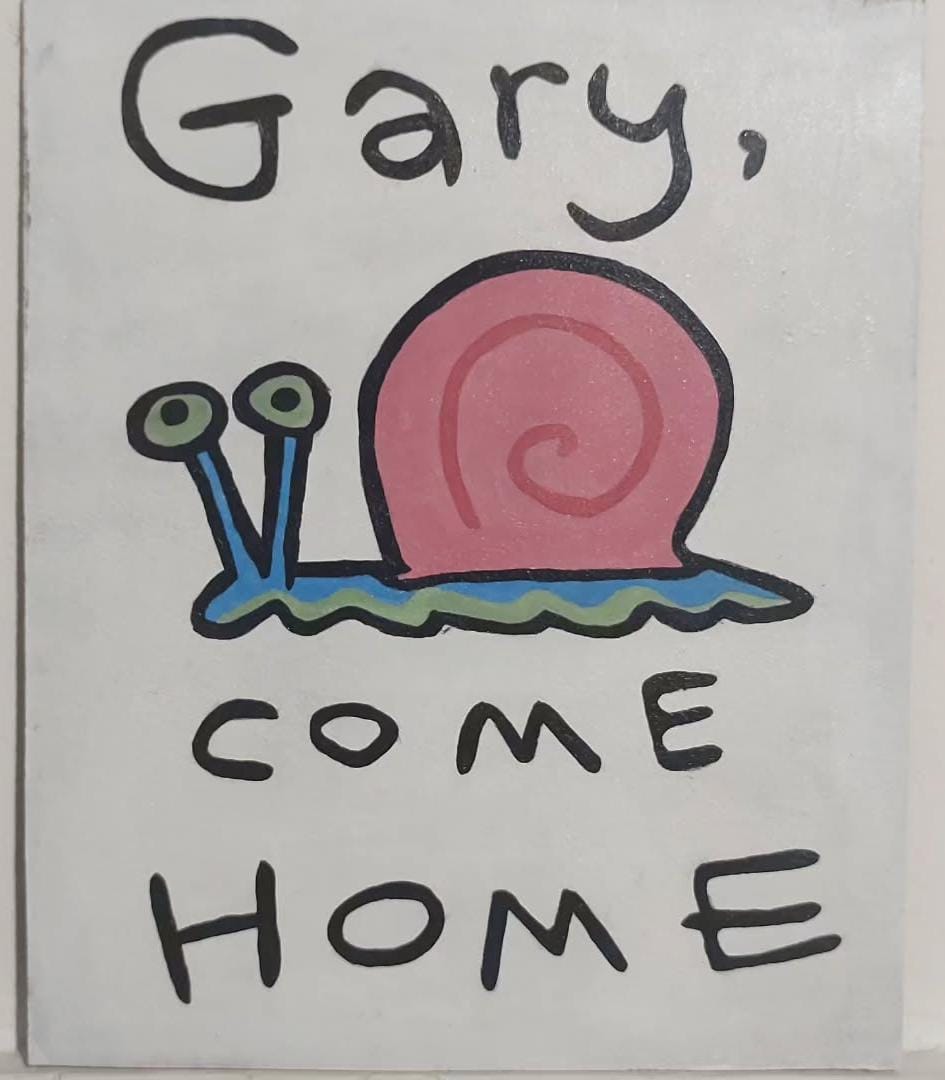 Gary,
COME
HOME